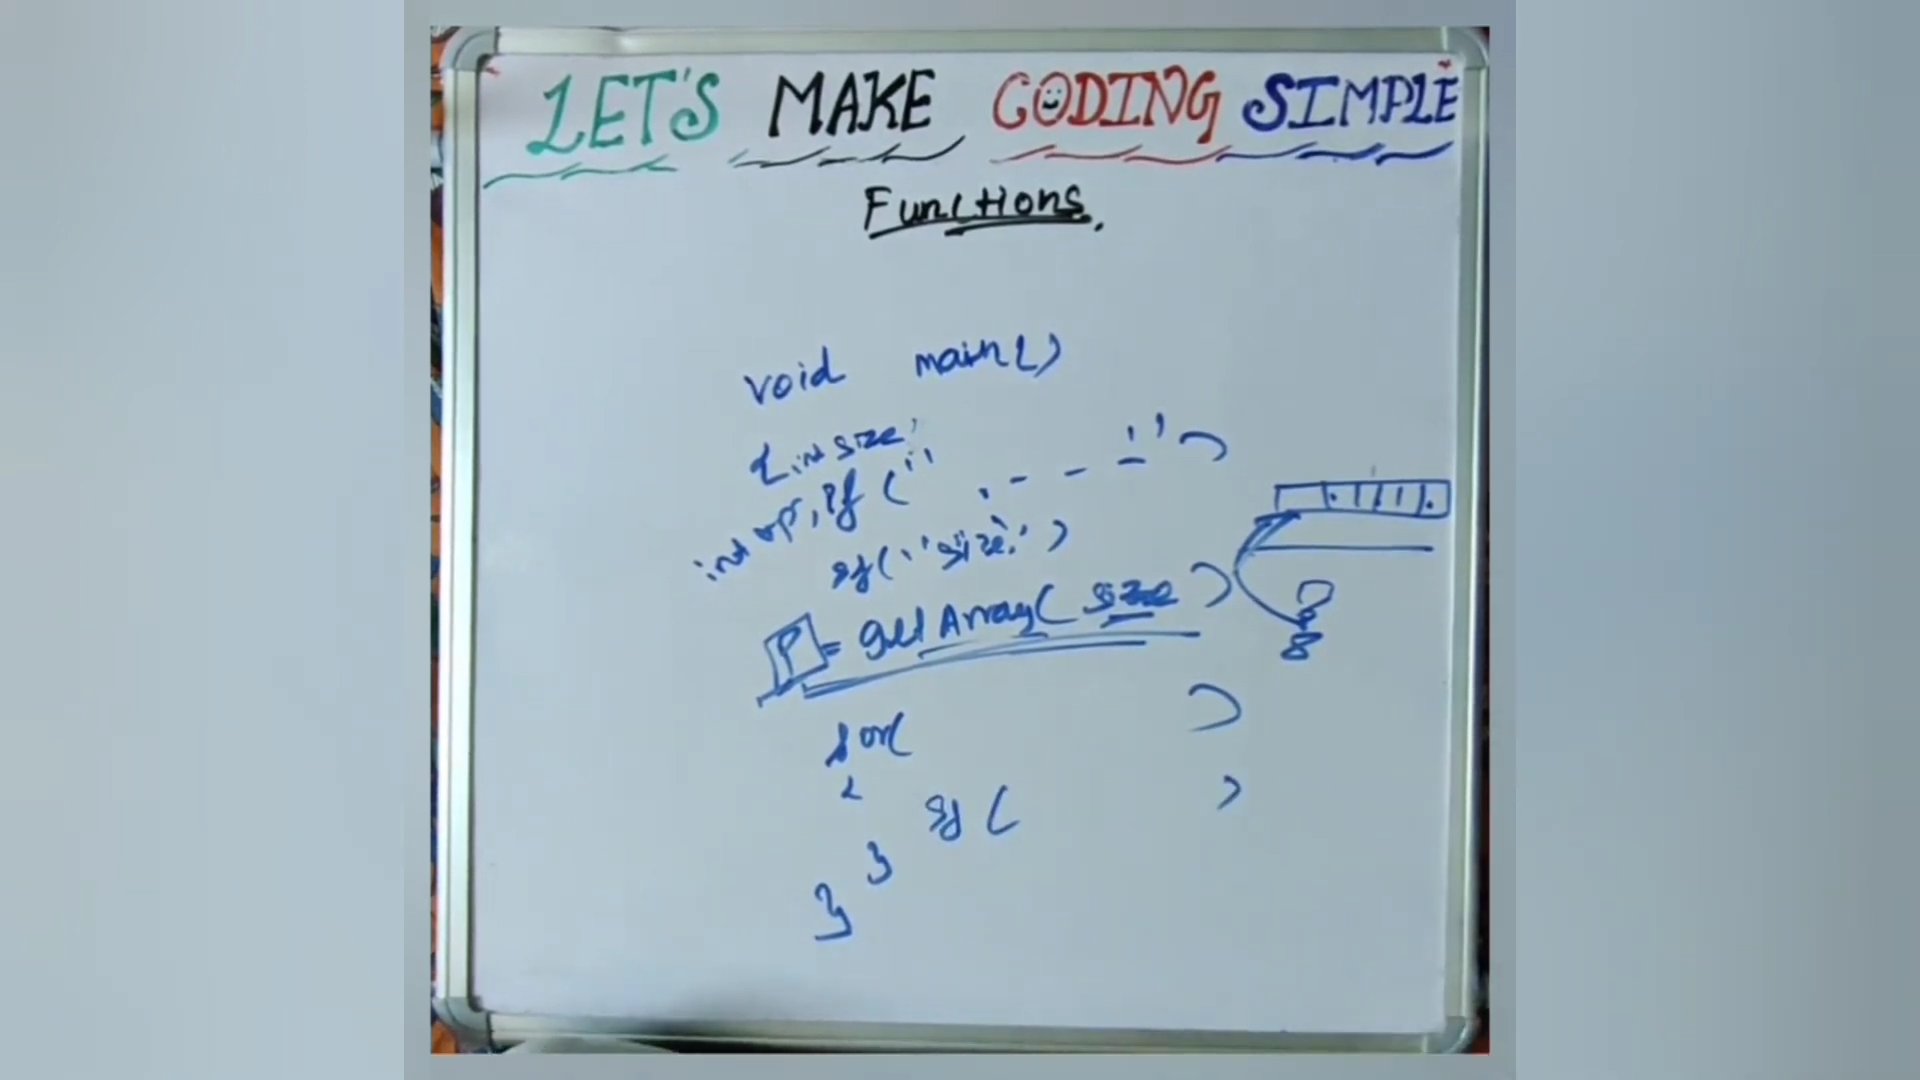 LET'S MAKE CODING SIMPLE
Functions.
void main()
{ int size;
pf (" . - - - ")
sf("size")
P = getArray( size )
for( )
{
sf ( )
}
}